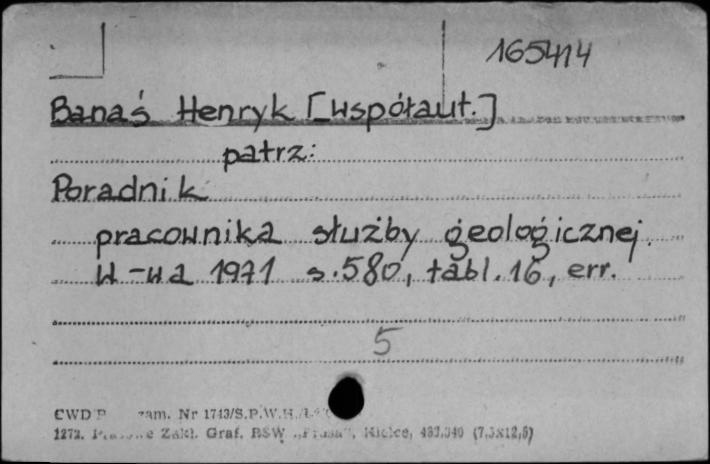 165414
Banaś Henryk [współaut.]
patrz:
Poradnik
pracownika służby geologicznej.
W-wa 1971 s. 580, tabl. 16, err.
5
CWD zam. Nr 1713/S.P.W.H.
1272. Zakł. Graf. RSW „Prasa”, Kielce, (7,5x12,5)